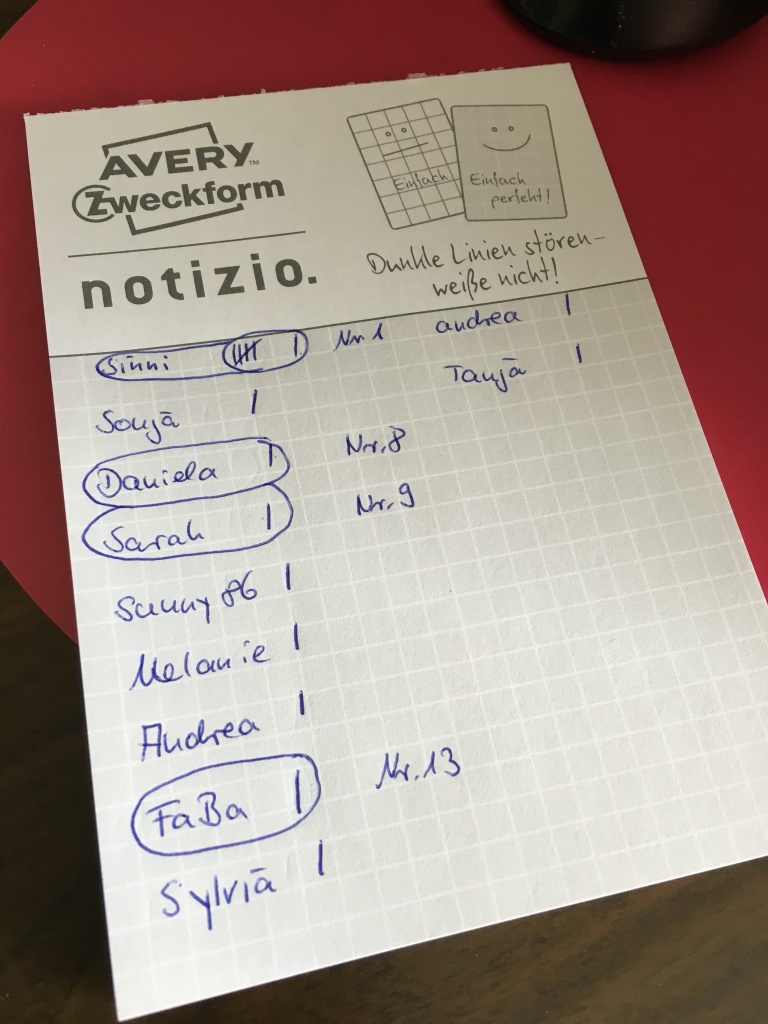 AVERY™
Zweckform
notizio.
Einfach
Einfach
perfekt!
Dunkle Linien stören-
weiße nicht!
Sinni |||| | Nr. 1 andrea |
Sonja | Tanja |
Daniela | Nr. 8
Sarah | Nr. 9
Sunny86 |
Melanie |
Andrea |
FaBa | Nr. 13
Sylvia |